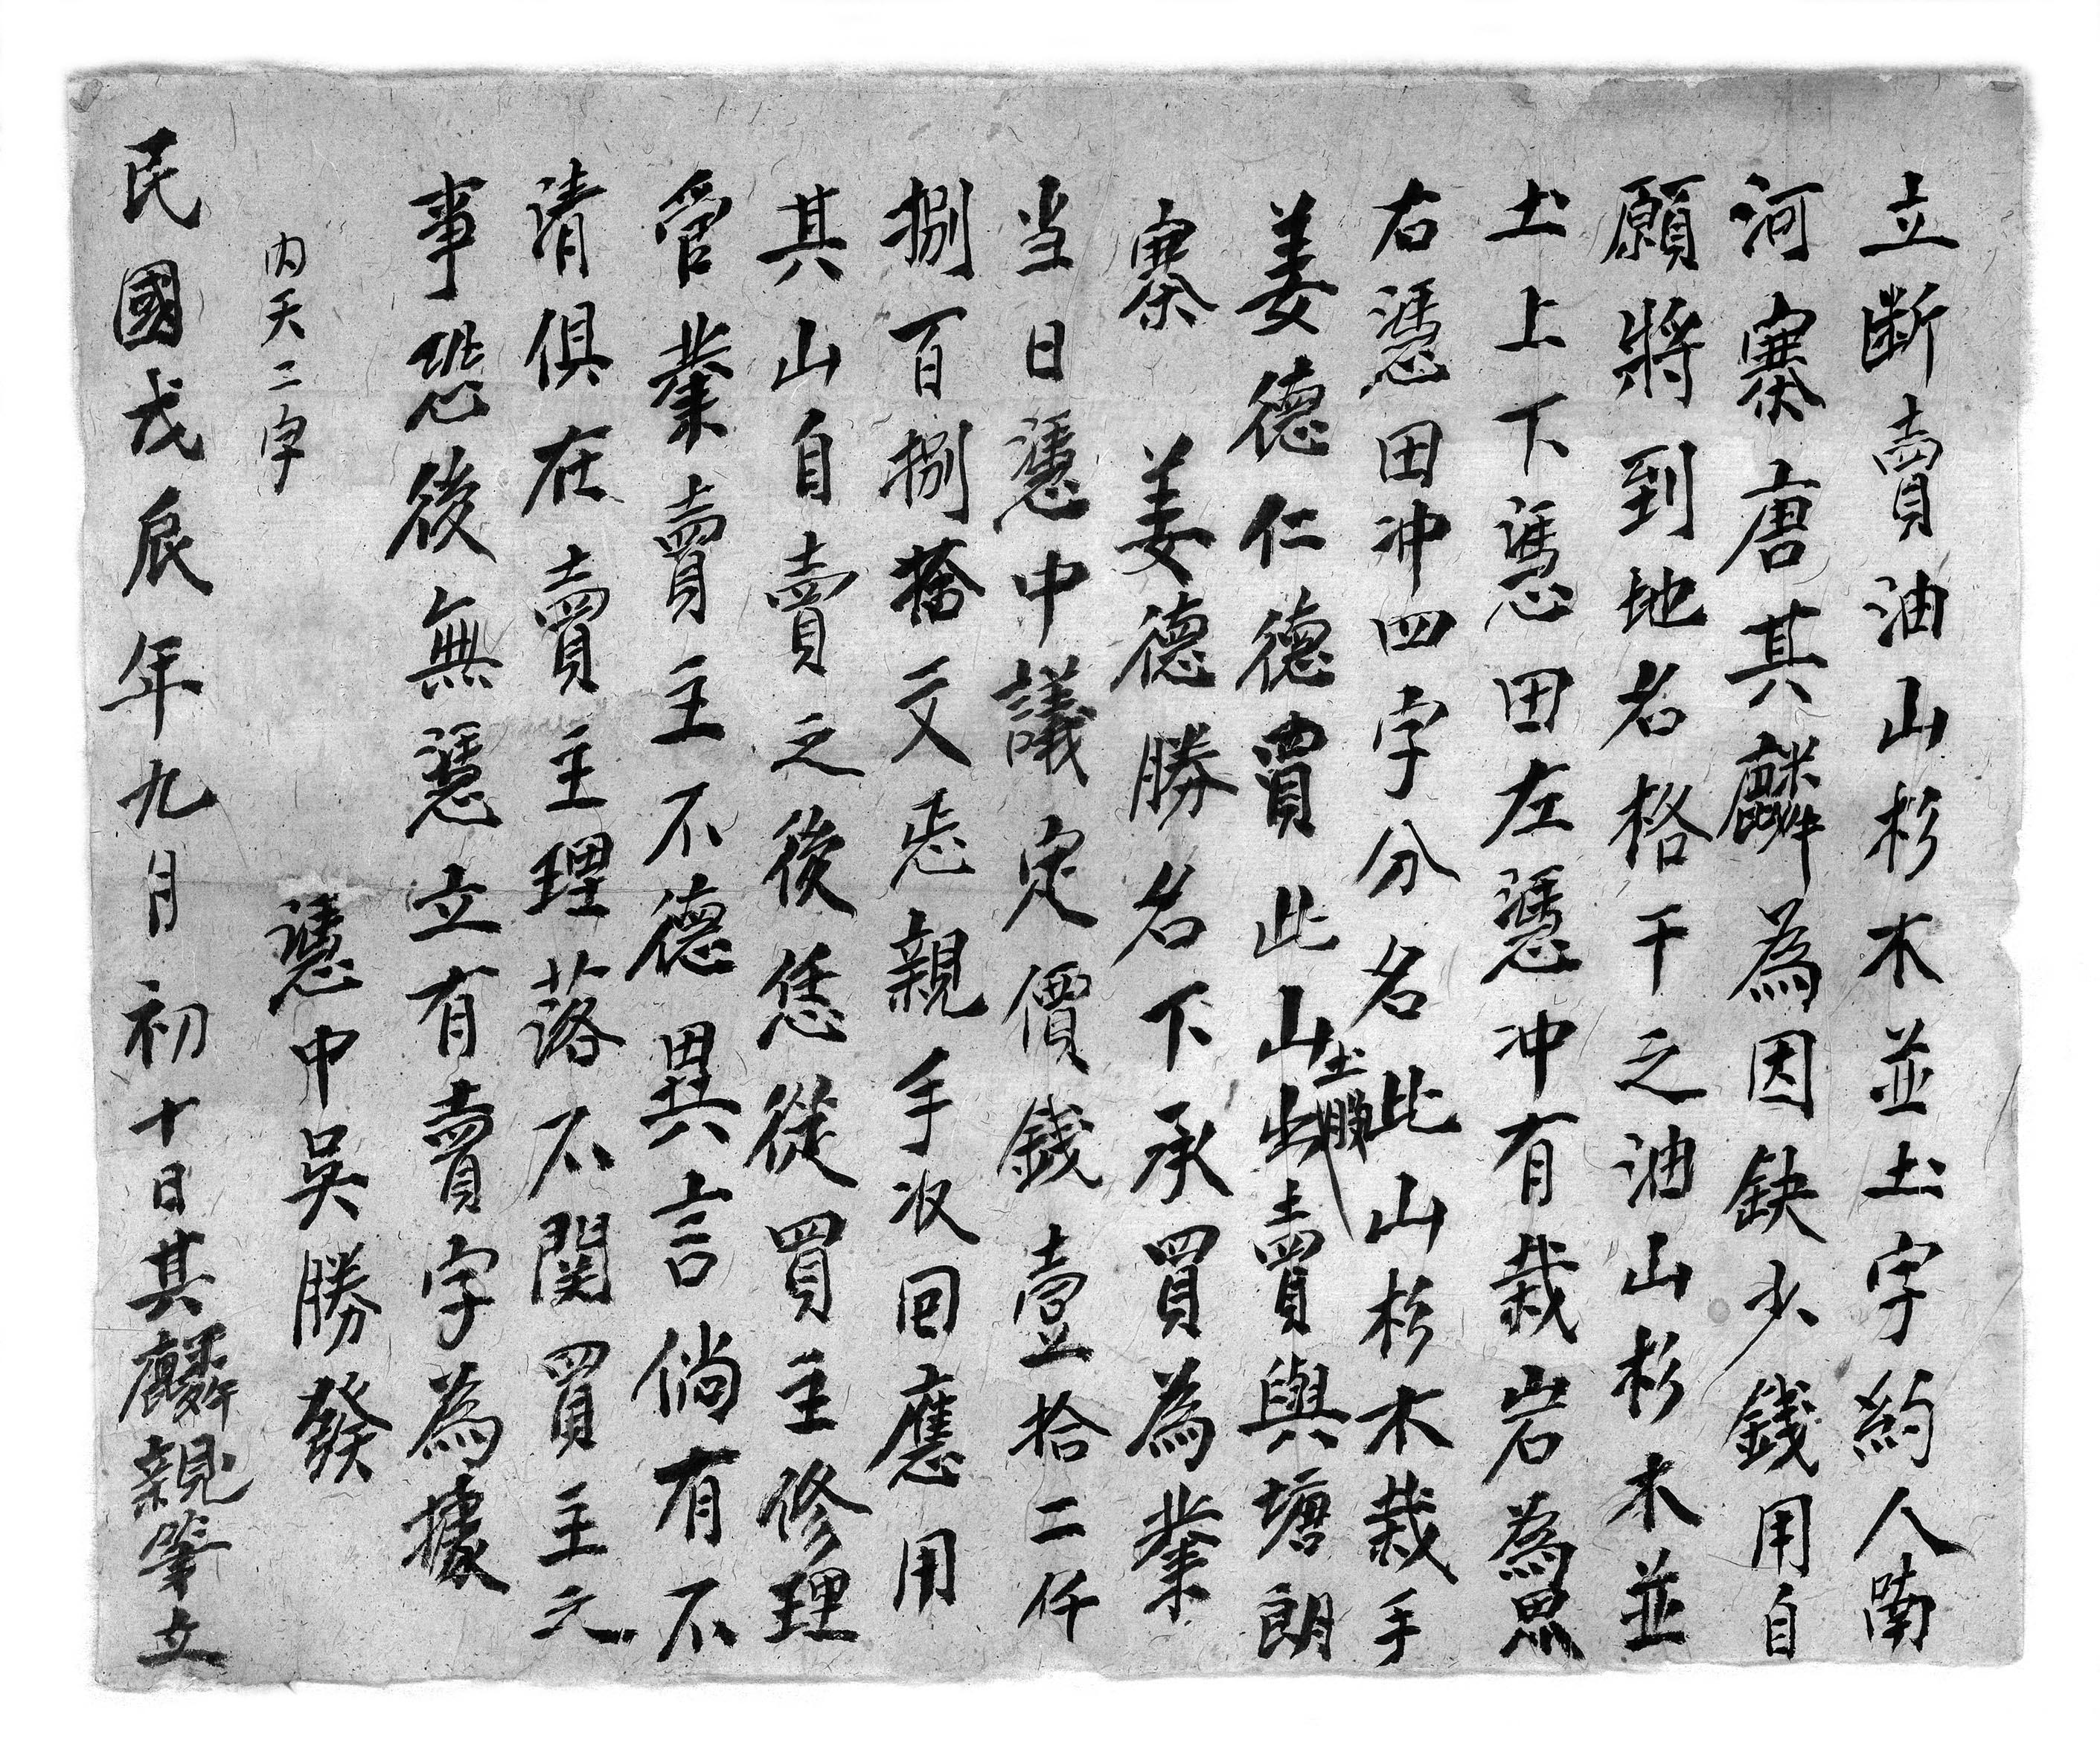 立断賣油山杉木並土字約人南
河寨唐其麟為因缺少錢用自
願將到地名格干之油山杉木並
土上下憑田左憑冲有栽岩為思
右憑田冲四字分名此山杉木栽手
姜德仁德賈此山土股出賣與塘朗
寨姜德勝名下承買為業
当日憑中議定價錢壹拾二仟
捌百捌拾文恁親手收回應用
其山自賣之後恁從買主修理
管業賣主不德異言倘有不
清俱在賣主理落不関買主之
事恐後無憑立有賣字為據
内天二字
憑中吳勝發
民國戊辰年九月初十日其麟親筆立